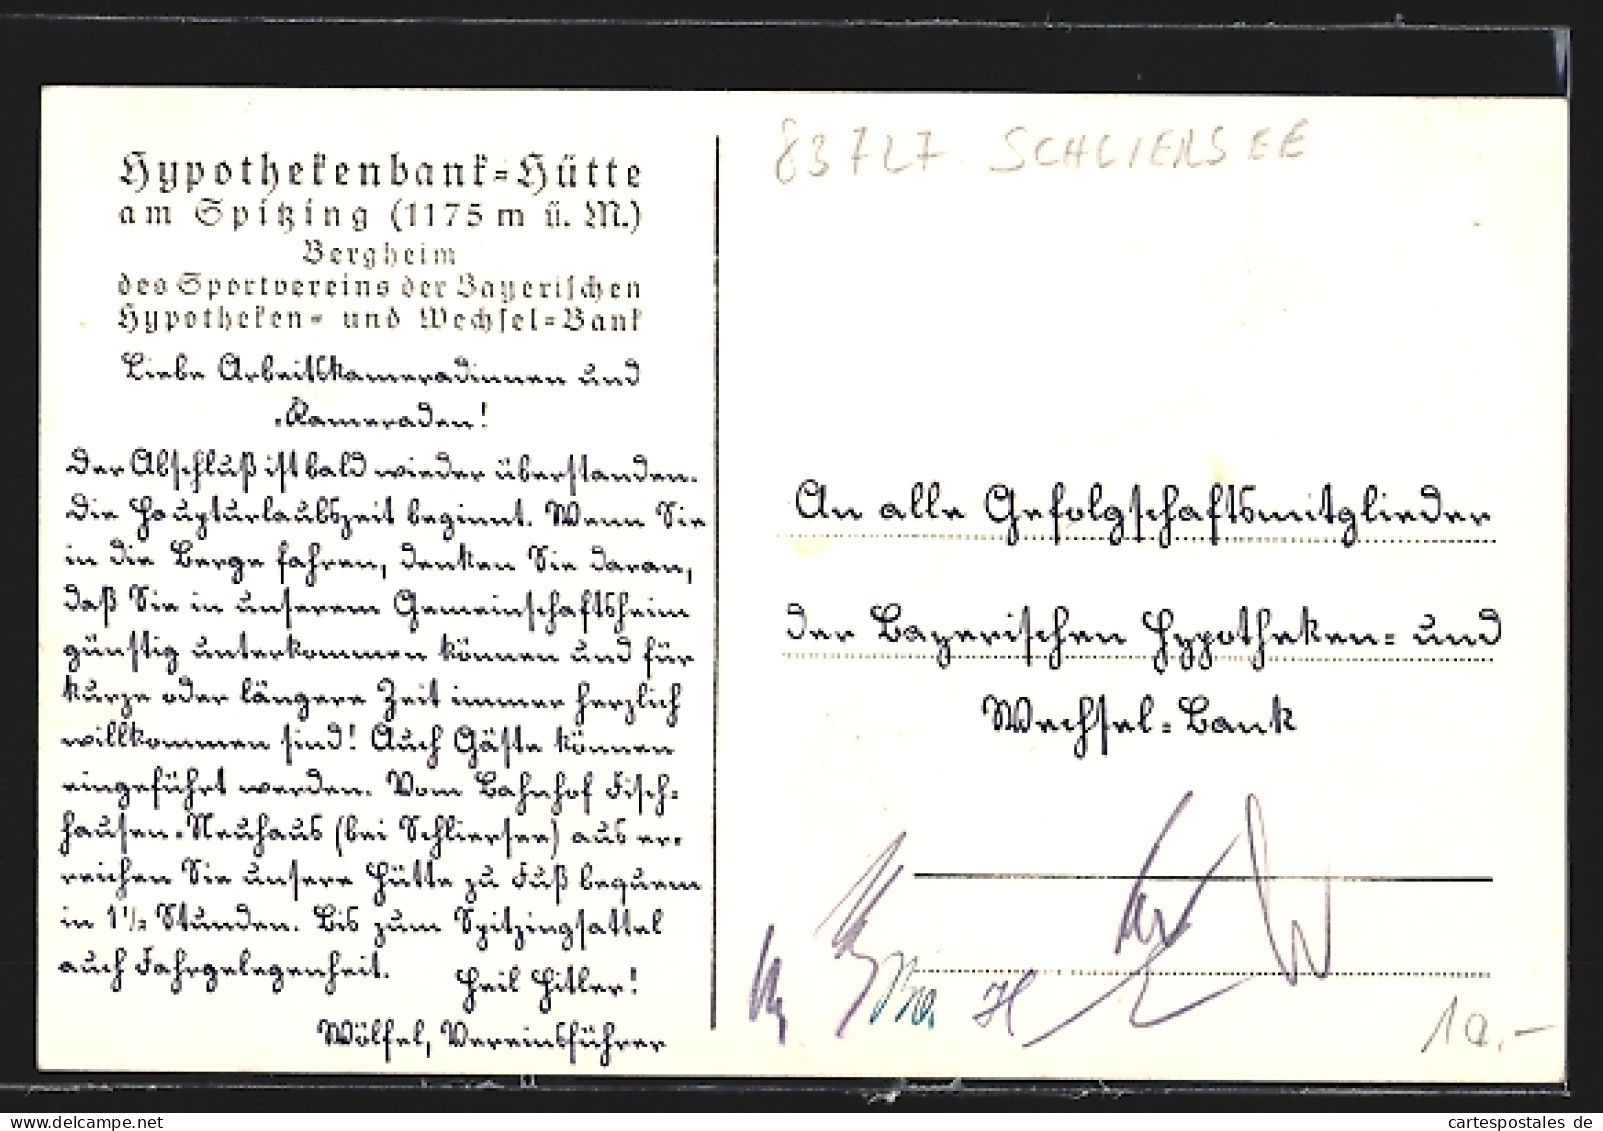 Hypothekenbank=Hütte
am Spitzing (1175 m ü. M.)
Bergheim
des Sportvereins der Bayerischen
Hypotheken= und Wechsel=Bank
Liebe Arbeitskameradinnen und
Kameraden!
Der Abschluß ist bald wieder überstanden.
Die Haupturlaubszeit beginnt. Wenn Sie
in die Berge fahren, denken Sie daran,
daß Sie in unserem Gemeinschaftsheim
günstig unterkommen können und für
kurze oder längere Zeit immer herzlich
willkommen sind! Auch Gäste können
eingeführt werden. Vom Bahnhof Fisch-
hausen-Neuhaus (bei Schliersee) aus er-
reichen Sie unsere Hütte zu Fuß bequem
in 1½ Stunden. Bis zum Spitzingsattel
auch Fahrgelegenheit.
Heil Hitler!
Wölfel, Vereinsführer
83727 SCHLIERSEE
An alle Gefolgschaftsmitglieder
der Bayerischen Hypotheken= und
Wechsel=Bank
10,-
cartespostales de